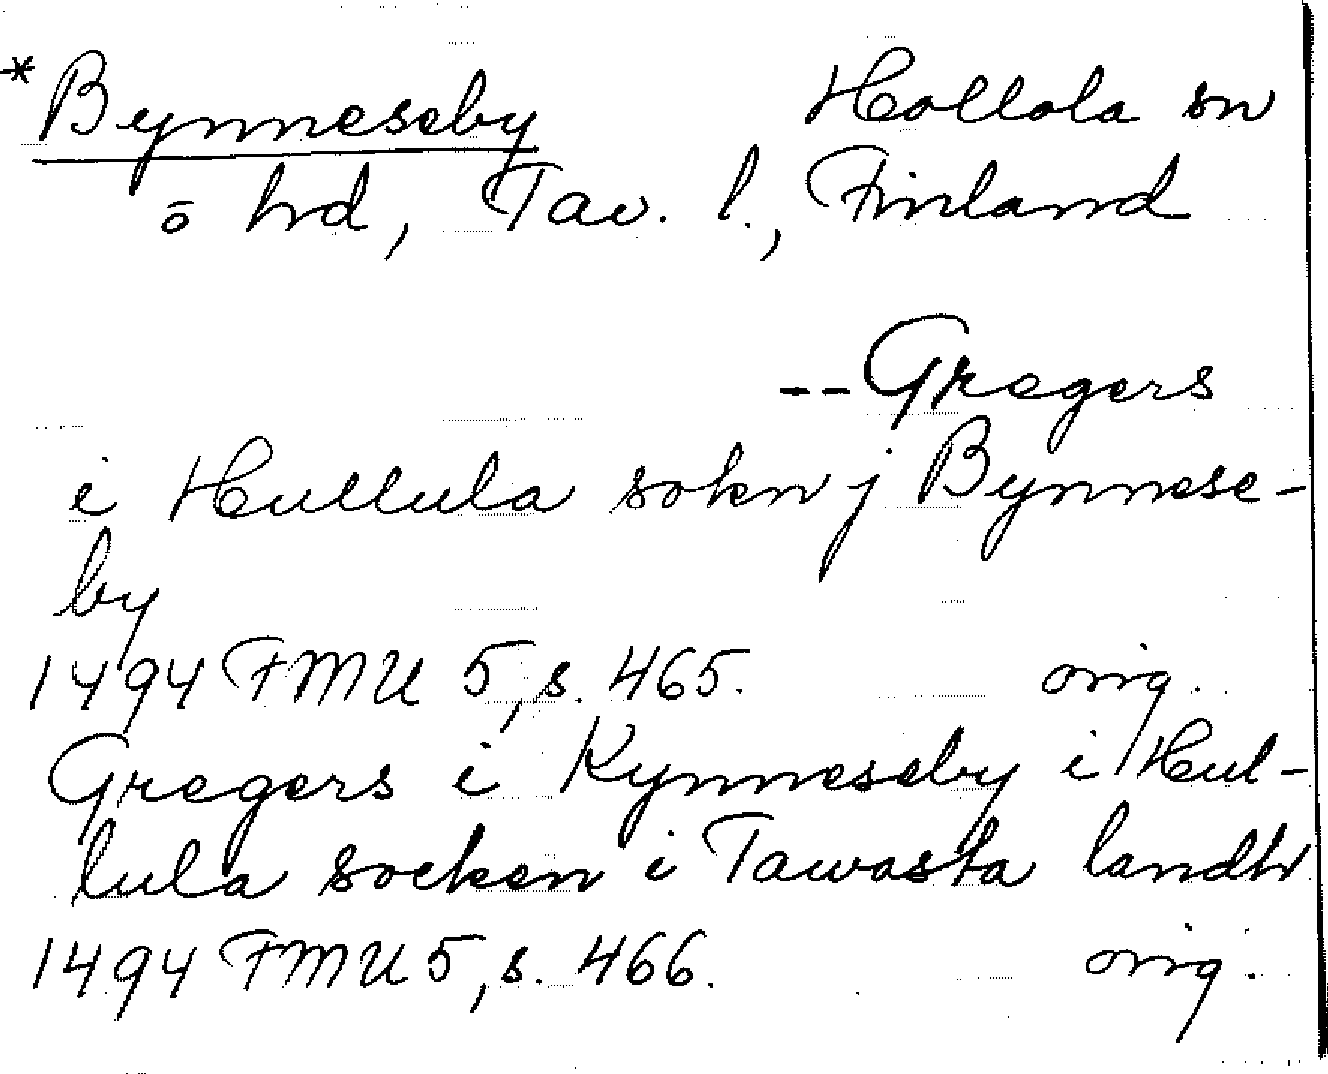 * Bynneseby Hollola sn
o hd, Tav. l., Finland
-- Gregers
i Hullula sokn j Bynnese-
by
1494 FMU 5, s. 465. orig.
Gregers i Kynneseby i Hul-
lula socken i Tawasta landh
1494 FMU 5, s. 466. orig.